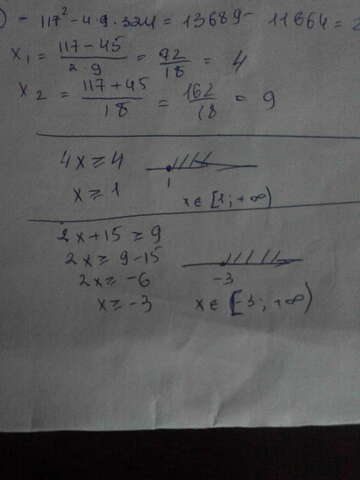 ) = 117² - 4·9·324 = 13689 - 11664 =
x₁ = (117-45)/(2·9) = 92/18 = 4
x₂ = (117+45)/18 = 162/18 = 9
4x ≥ 4
x ≥ 1
1
x ∈ [1; +∞)
2x+15 ≥ 9
2x ≥ 9-15
2x ≥ -6
x ≥ -3
-3
x ∈ [-3; +∞)